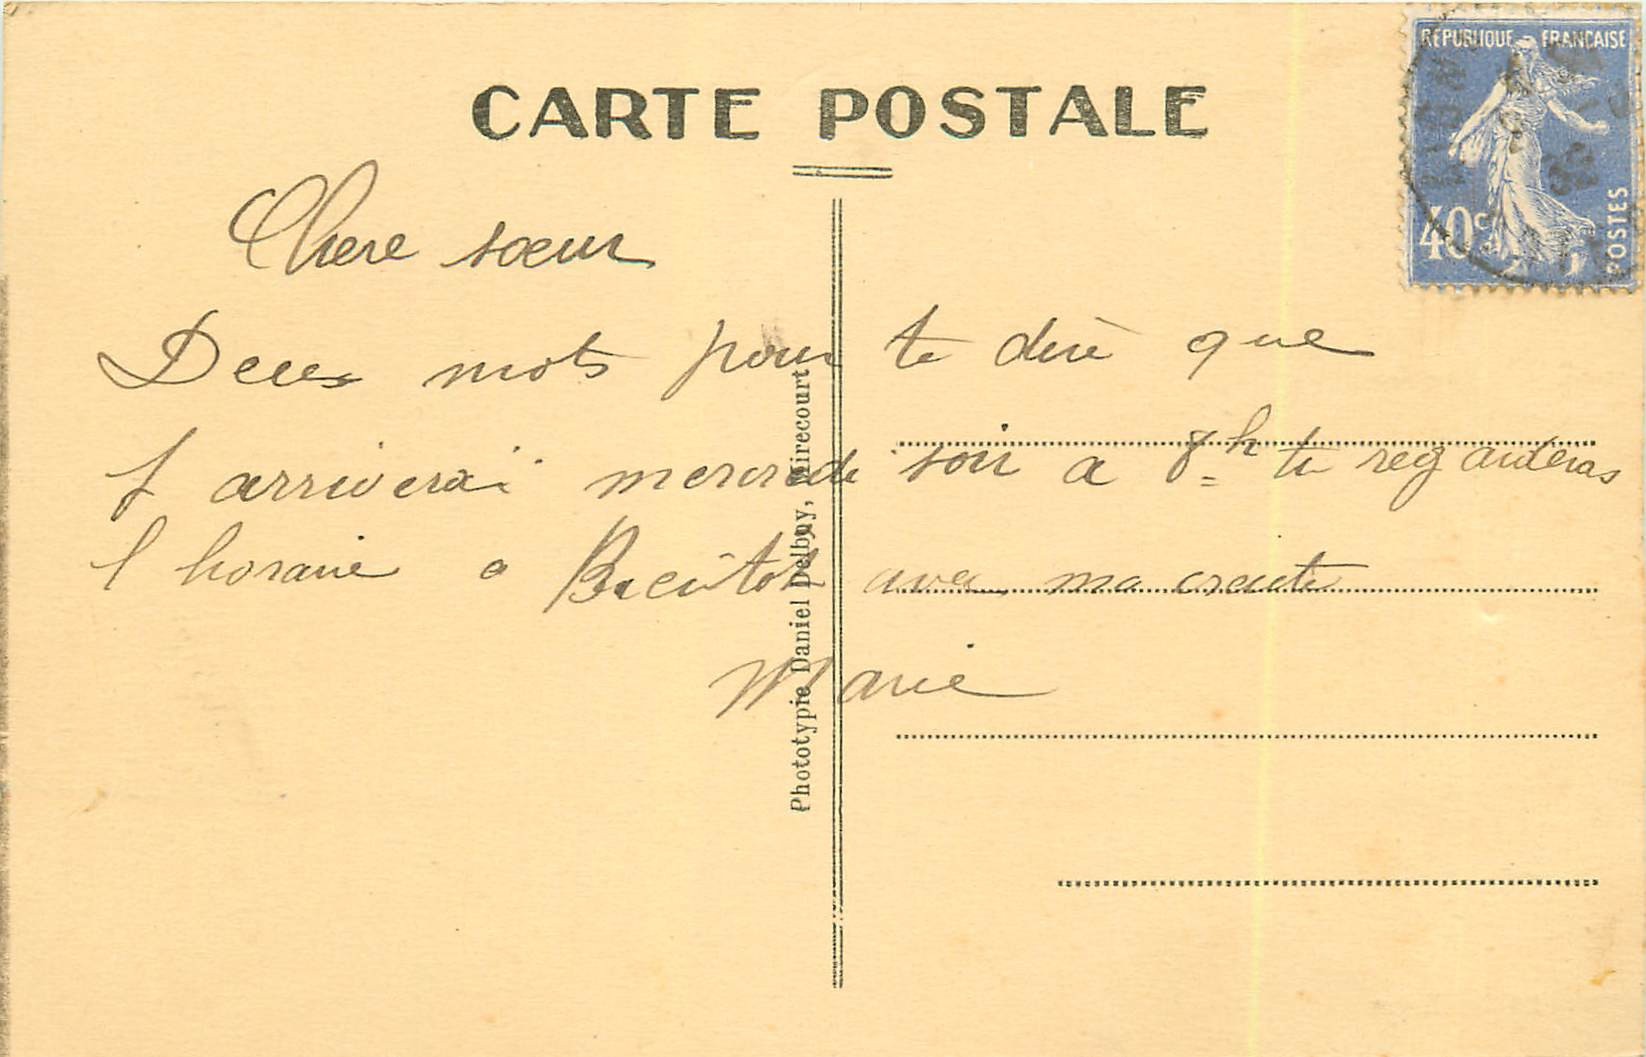 CARTE POSTALE
RÉPUBLIQUE FRANÇAISE
40c
POSTES
Chere sœur
Deux mots pour te dire que
J arriverai mercredi soir a 8h tu regarderas
l horaire a Bientot avec ma
Marie
Phototypie Daniel Delboy, Mirecourt